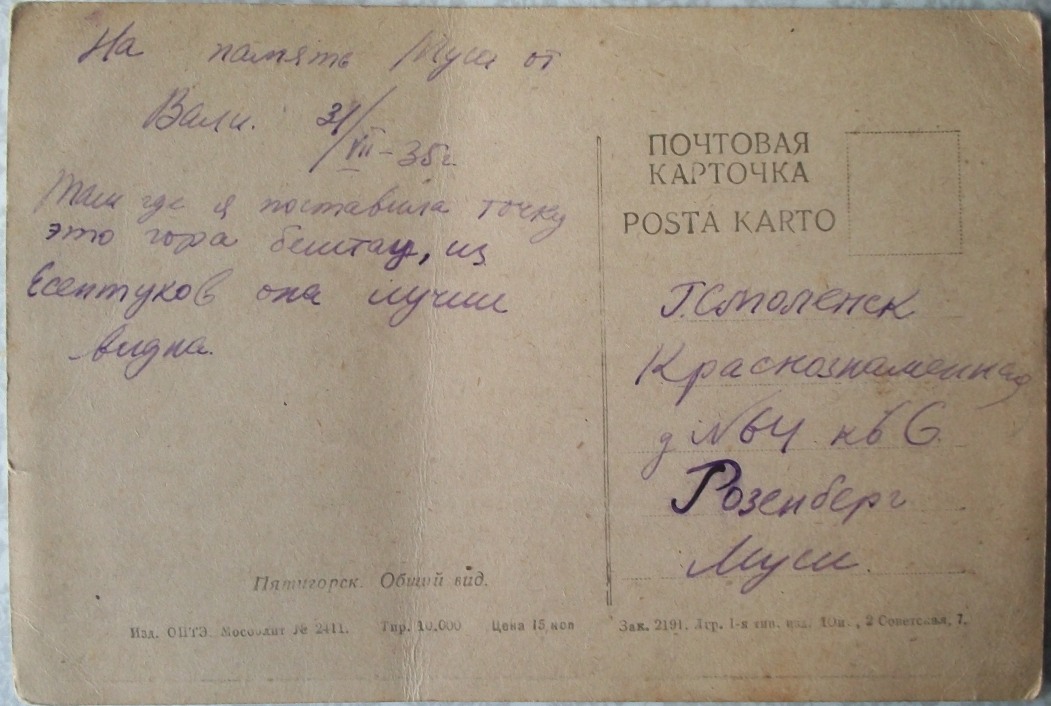 На память Муси от
Вали. 31/VII-35г.
Там где я поставила точку
это гора бештау, из
Есентуков она лучши
видна.
ПОЧТОВАЯ
КАРТОЧКА
POSTA KARTO
Г. Смоленск
Краснознаменная
д № 4 кв 6
Розенберг
Муси.
Пятигорск. Общий вид.
Изд. ОПТЭ. Мособлит № 2411. Тир. 10.000 Цена 15 коп
Зак. 2191. 1-я тип. изд. 2 Советская, 7.